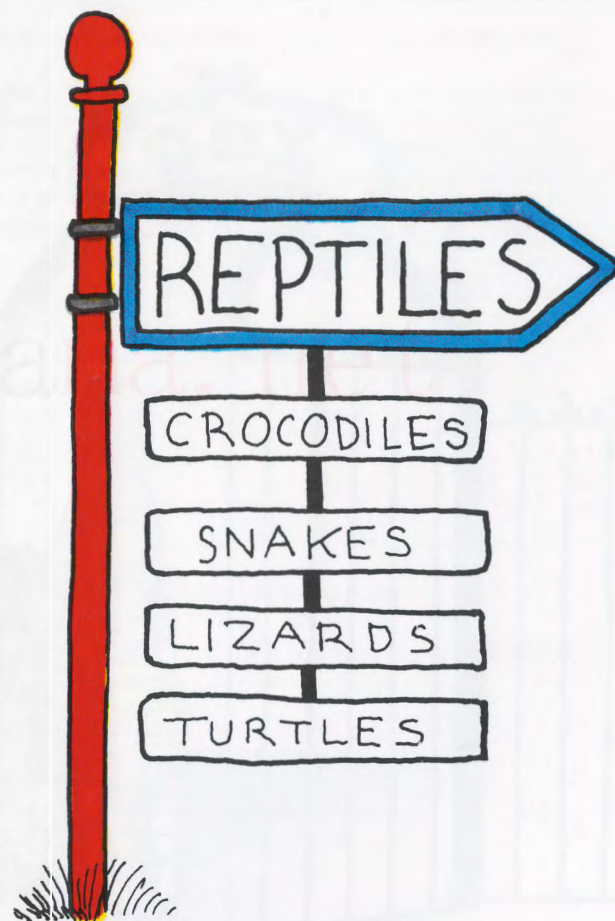 REPTILES
CROCODILES
SNAKES
LIZARDS
TURTLES